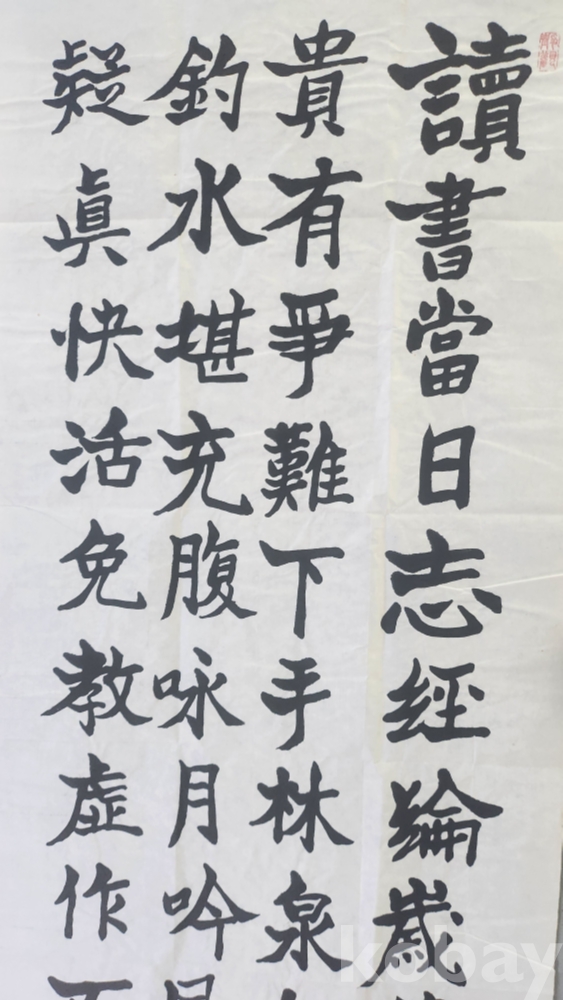 讀書當日志經綸歲
貴有爭難下手林泉
釣水堪充腹咏月吟
疑眞快活免教虛作
kobay